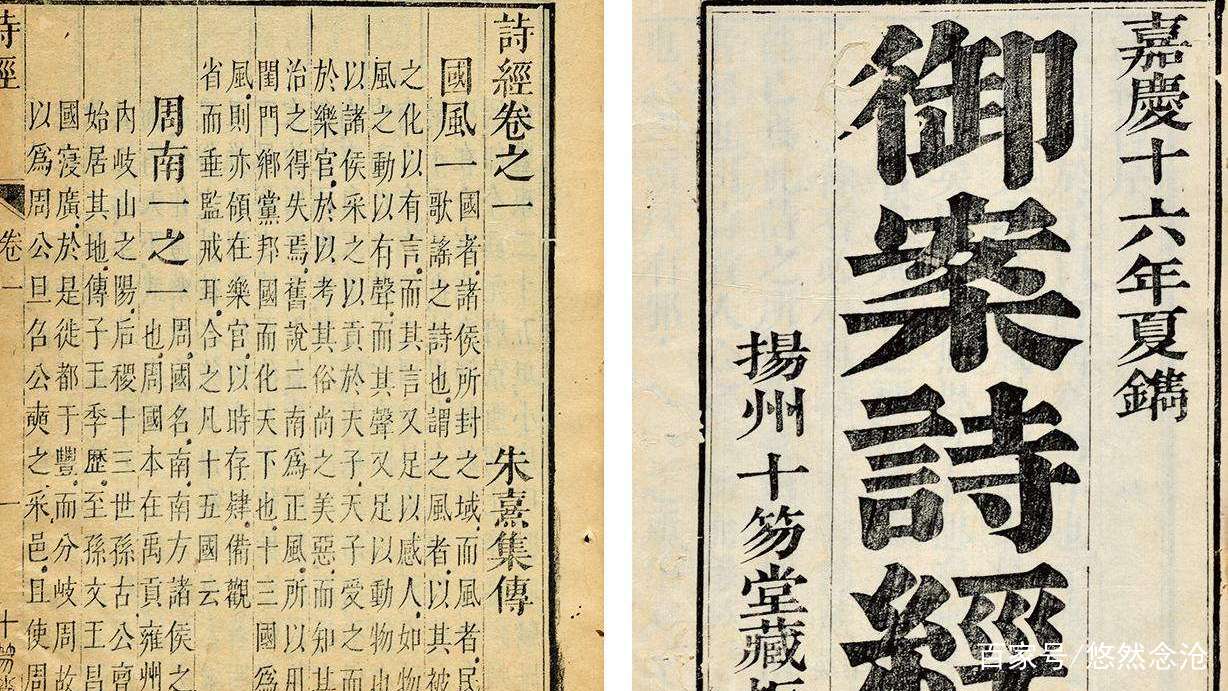 嘉慶十六年夏鐫
御案詩經
揚州十笏堂藏
詩經卷之一 朱熹集傳
國風一 國者諸侯所封之域而風者民
歌謠之詩也謂之風者以其被
之化以有言而其言又足以感人如物
風之動以有聲而其聲又足以動物也
以諸侯采之以貢於天子天子受之而
於樂官於以考其俗尚之美惡而知其
治之得失焉舊說二南爲正風所以用
閨門鄉黨邦國而化天下也十三國爲
風則亦領在樂官以時存肄備觀
省而垂監戒耳合之凡十五國云
周南一之一 周國名南南方諸侯之
也周國本在禹貢雍州
內岐山之陽后稷十三世孫古公亶
始居其地傳子王季歷至孫文王昌
國寖廣於是徙都于豐而分岐周故
以爲周公旦召公奭之采邑且使周
詩經 卷一 一 十笏
百家号/悠然念沧